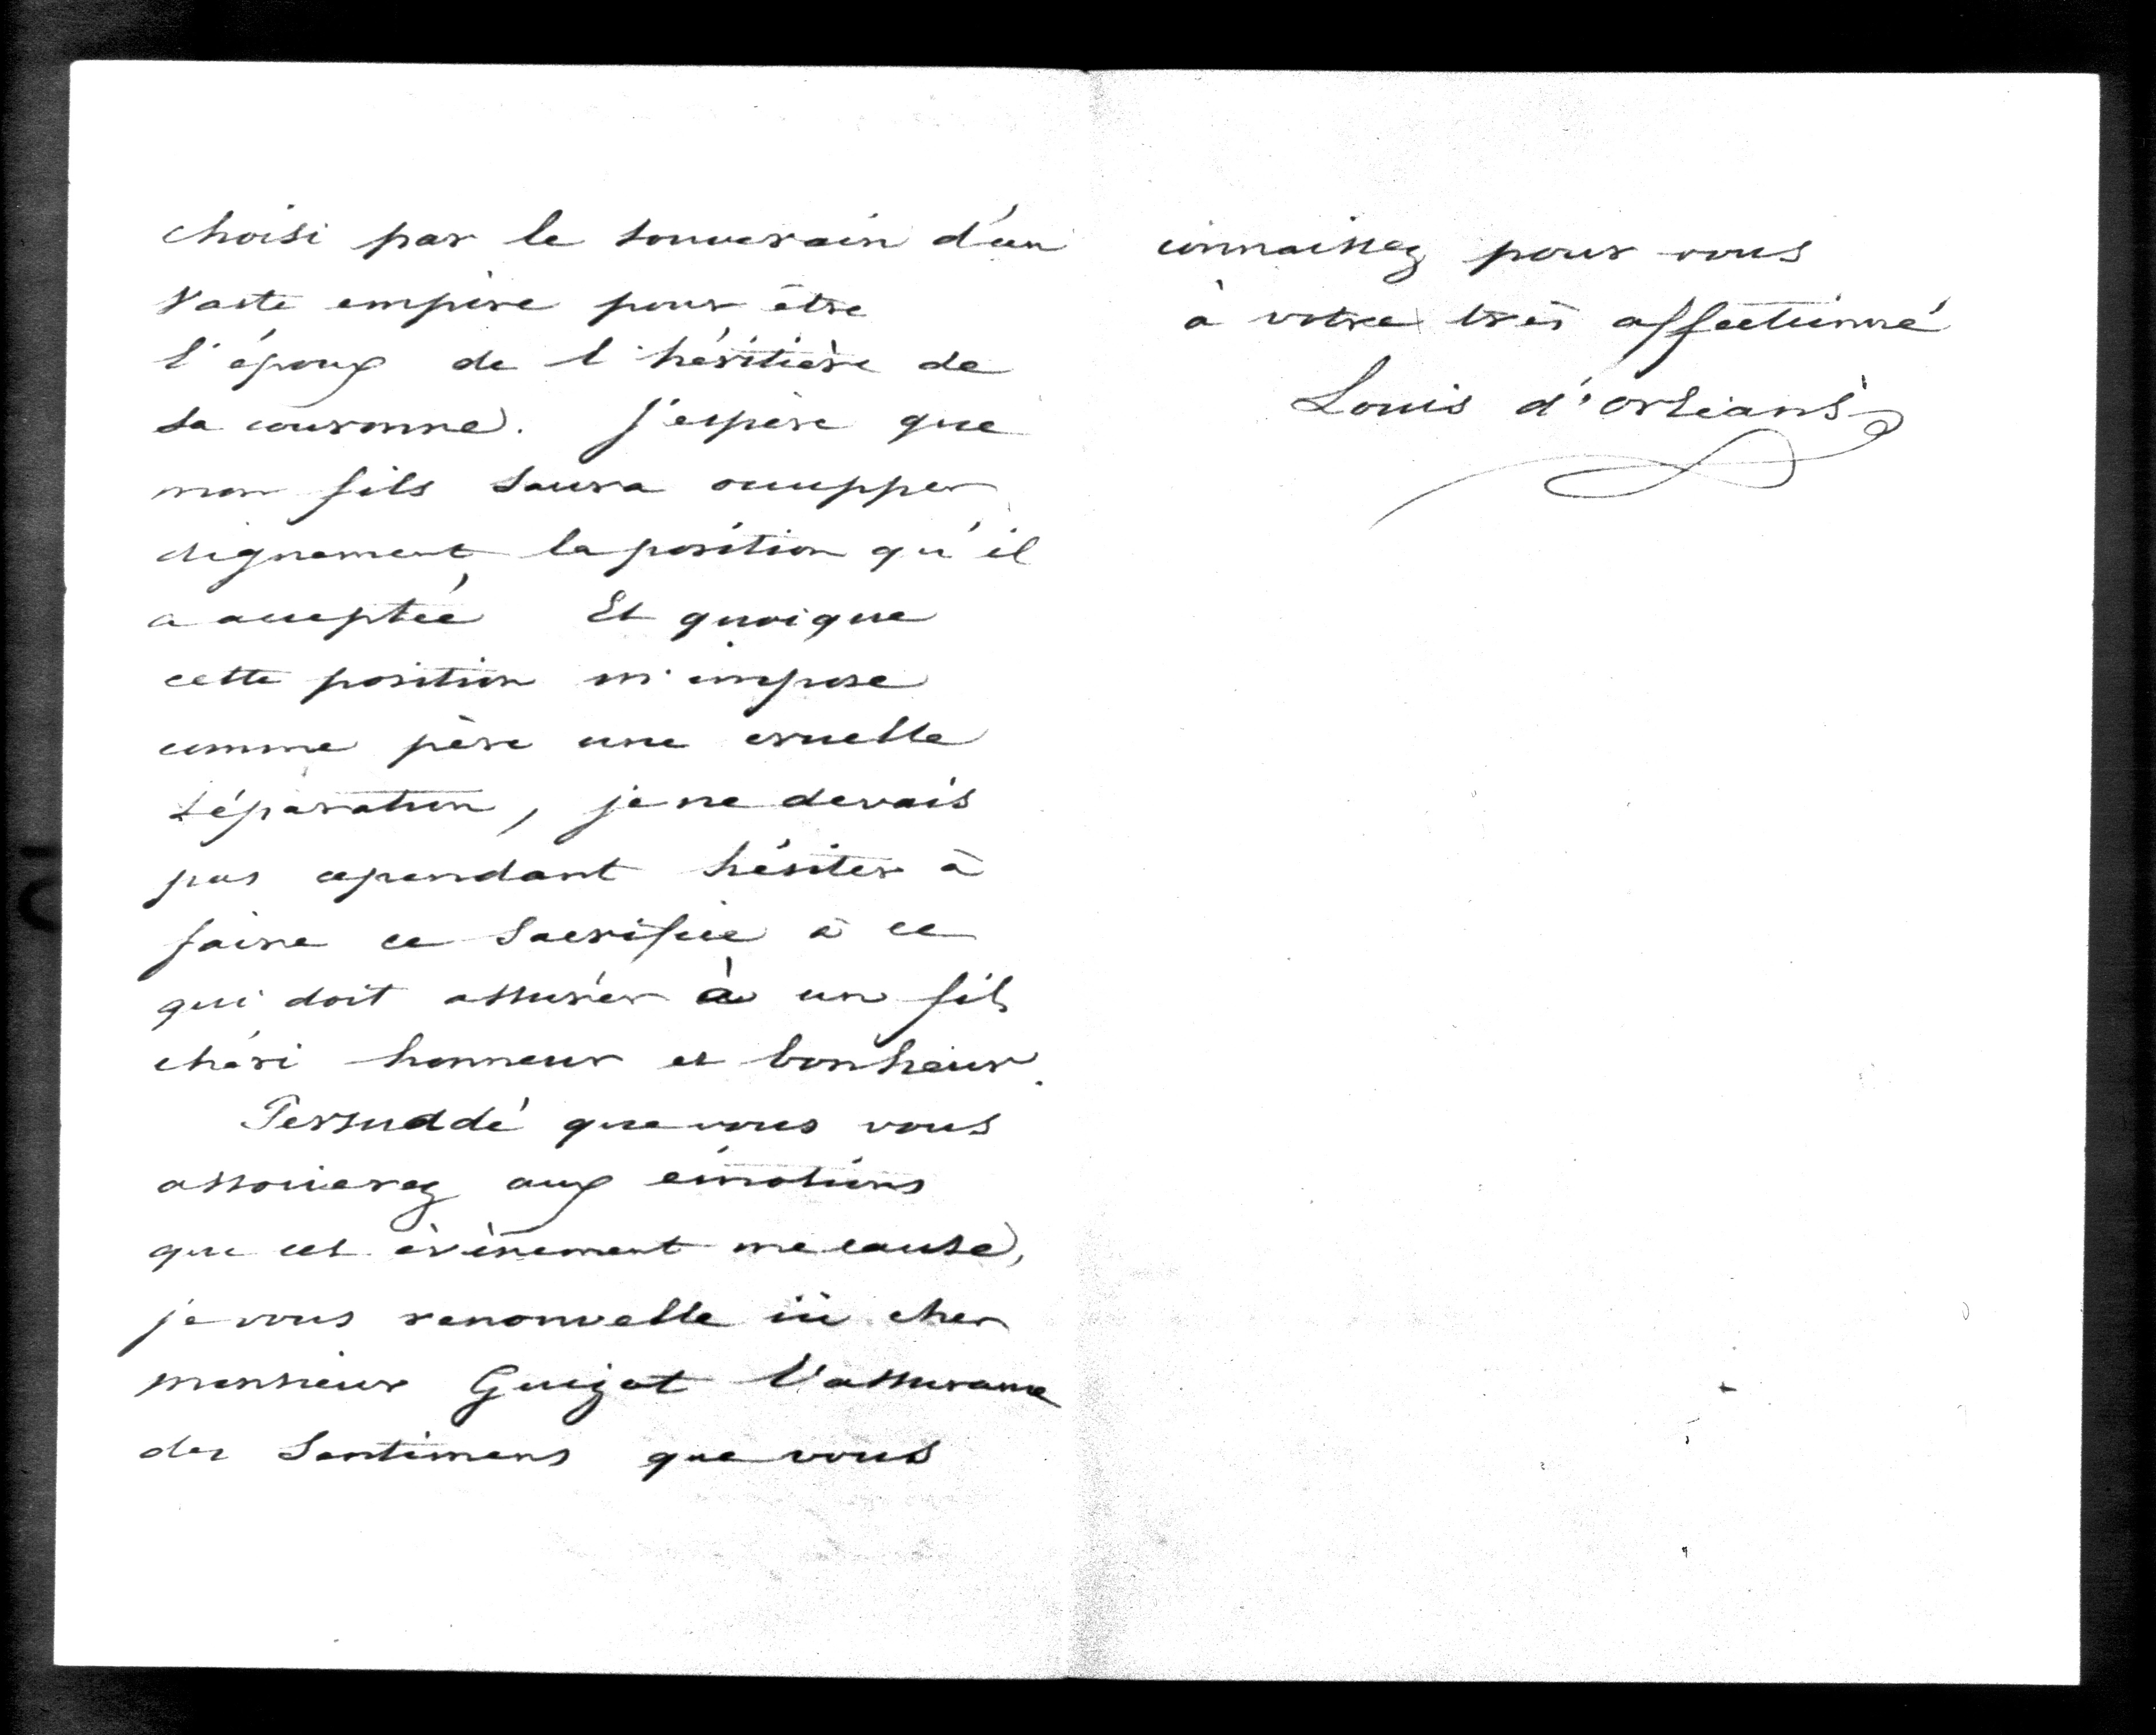 choisi par le souverain d'un
vaste empire pour être
l'époux de l'héritière de
sa couronne. J'espère que
mon fils saura occupper
dignement la position qu'il
a acceptée Et quoique
cette position m'impose
comme père une cruelle
séparation, je ne devais
pas cependant hésiter à
faire ce sacrifice à ce
qui doit assurer à un fils
chéri honneur et bonheur.
Persuadé que vous vous
associerez aux émotions
que cet évènement me cause,
je vous renouvelle ici cher
monsieur Guizot l'assurance
des sentimens que vous
connaissez pour vous
à votre très affectionné
Louis d'orléans